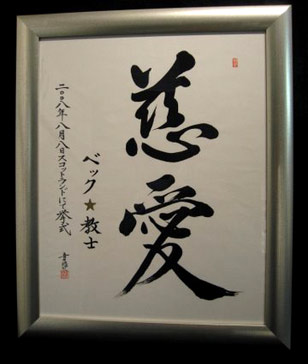 慈愛
ベック★教士
二〇〇八年八月八日スコットランドにて挙式